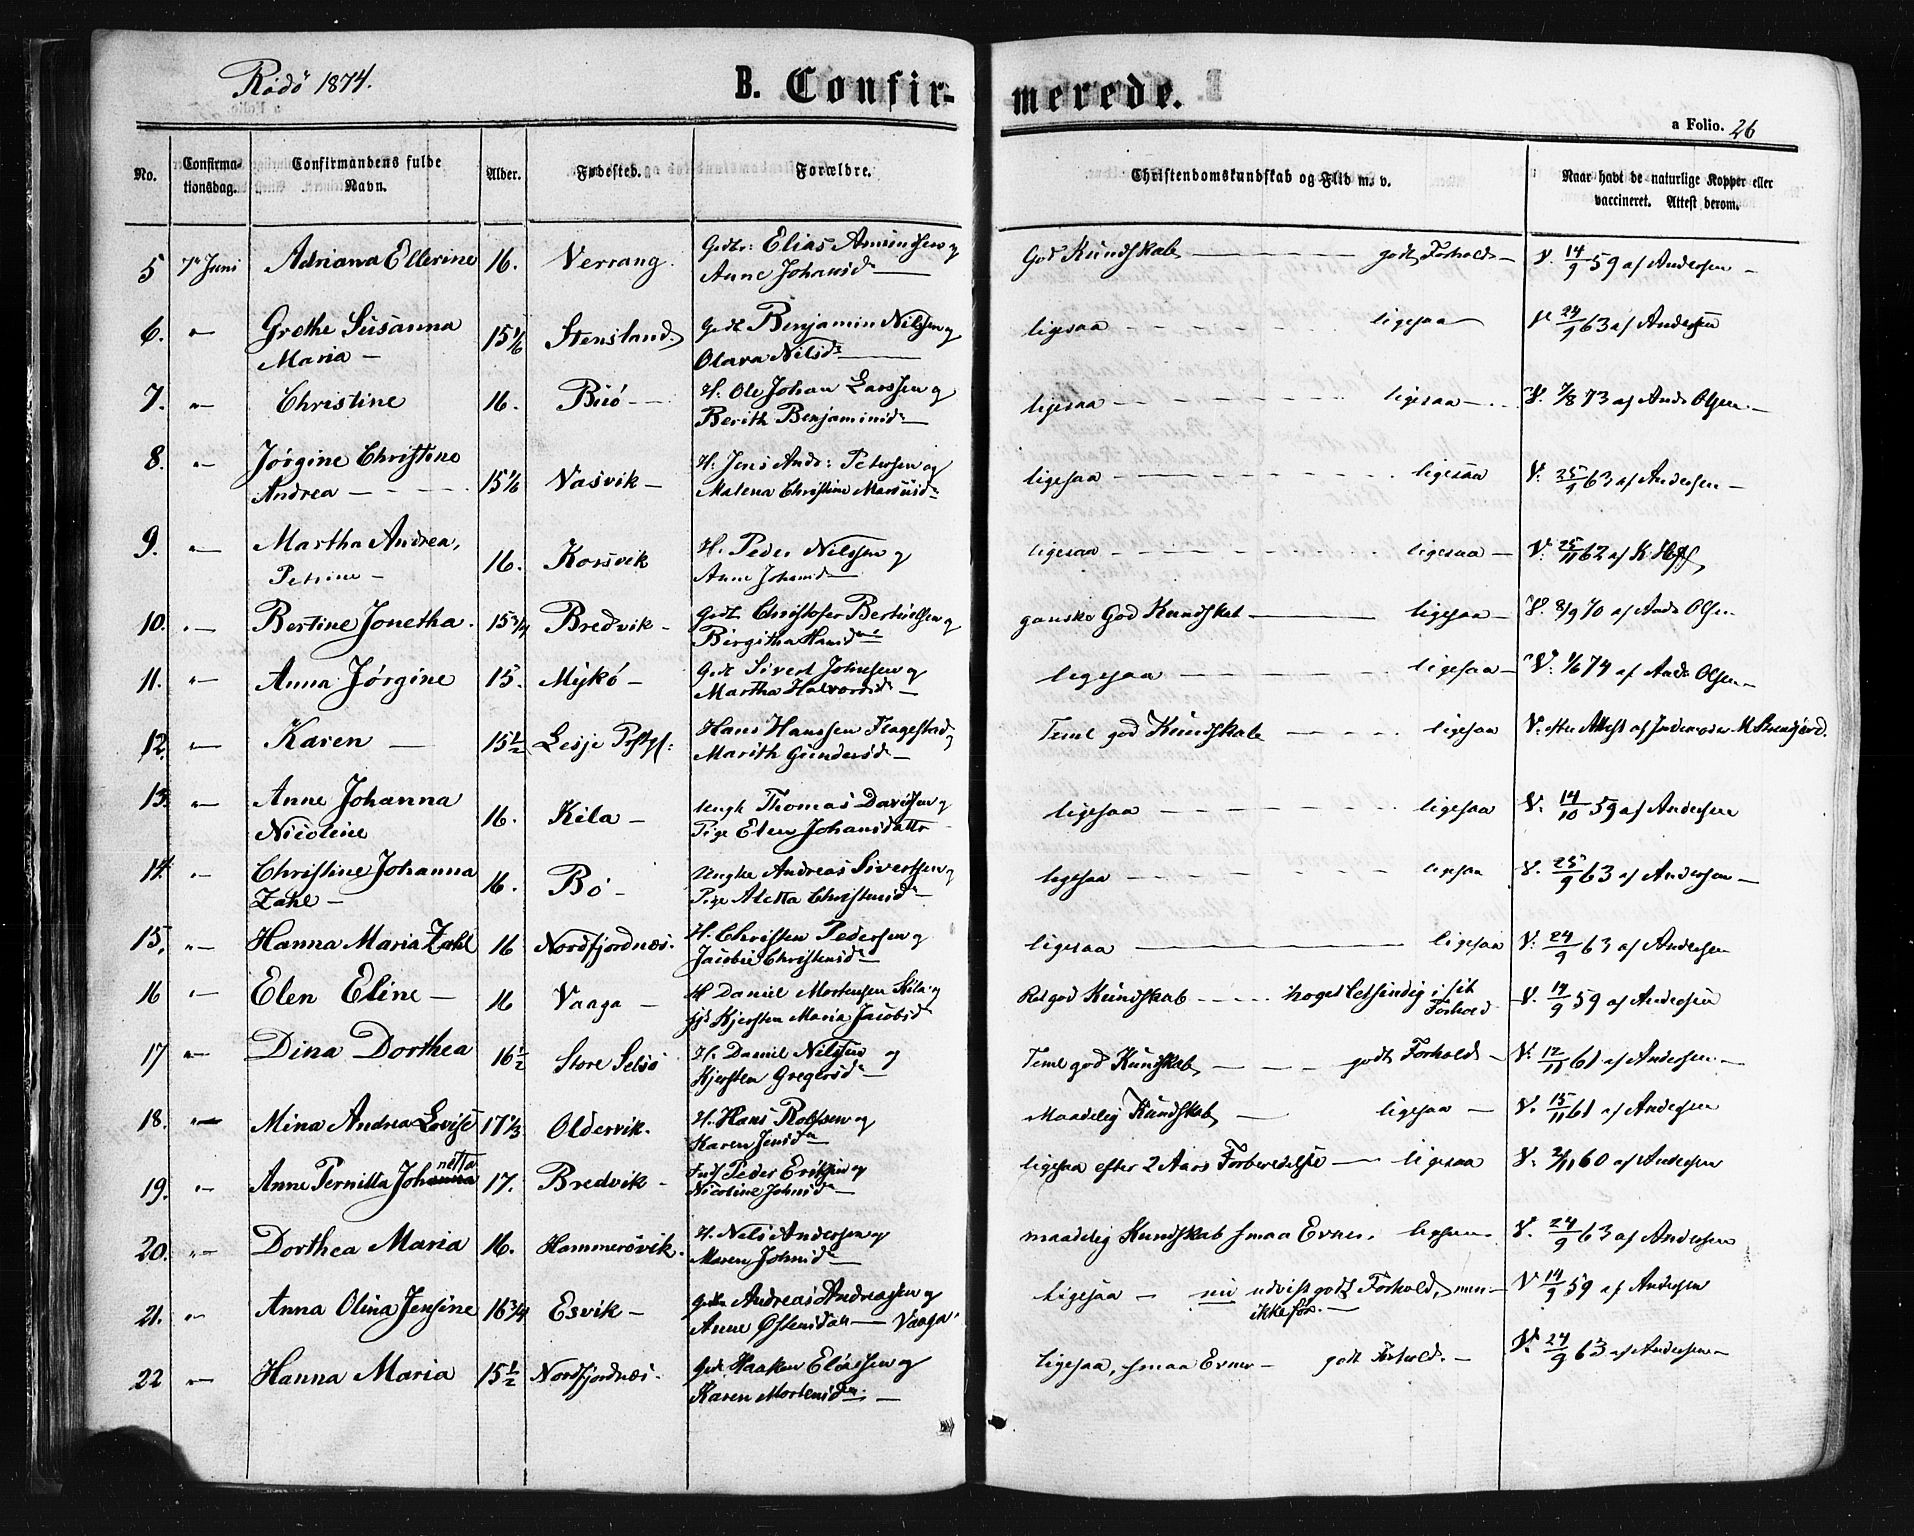 Rødø 1874.
B. Confirmerede.
a Folio. 26
No. | Confirma-tionsdag. | Confirmandens fulde Navn. | Alder. | Fødested. | Forældre. | Christendomskundskab og Flid m. v. | Naar havt de naturlige Kopper eller vaccineret. Attest derom.
5 | 7de Juni | Adriana Ellerine | 16. | Verrang. | Gdbr: Elias Amundsen og Anne Johansdr | God Kundskab — godt Forhold | V. 14/9 59 af Andersen
6. | " | Grethe Susanna Maria | 15 1/6 | Stensland | Gdbr Benjamin Nilssen og Olava Nilsdr | ligesaa — ligesaa | V 24/9 63 af Andersen
7. | " | Christine | 16. | Buø | H. Ole Johan Larssen og Berith Benjaminsdr | ligesaa — ligesaa | V. 7/8 73 af Ands Olsen
8. | " | Jørgine Christine Andrea | 15 1/6 | Vasvik | H. Jens Andr: Petersen og Malena Christine | ligesaa — ligesaa | V. 25/9 63 af Andersen
9. | " | Martha Andrea Petrine | 16. | Korsvik | H. Peder Nilssen og Anne Johansdr | ligesaa — ligesaa | V. 25/11 62 af K.
10. | " | Bertine Jonetha | 15 3/4 | Bredvik | Gdbr Christofer Bertinelsen og Birgitha Hansdr | ganske God Kundskab — ligesaa | V. 8/9 70 af Ands Olsen
11. | " | Anna Jørgine | 15. | Mykø | Gdbr Sivert Johnsen og Martha Halvorsdr | ligesaa — ligesaa | V. 1/6 74 af Ands Olsen
12. | " | Karen | 15 1/2 | Lesje Præstgj: | Hans Hanssen Flagestad og Marith Gundersdr | Teml god Kundskab — ligesaa | V. efter Attest af Jordemoder M.
13. | " | Anne Johanna Nicoline | 16. | Kila | Ungk Thomas Davidsen og Pige Elen Johansdatter | ligesaa — ligesaa | V. 14/10 59 af Andersen
14. | " | Christine Johanna Zahl | 16. | Bø | Ungke Andreas Sivertsen og Pige Aletta Christensdr | ligesaa — ligesaa | V. 25/9 63 af Andersen
15. | " | Hanna Maria Zahl | 16 | Nordfjordnæs. | H. Christen Pedersen og Jacobie Christensdr | ligesaa — ligesaa | V. 24/9 63 af Andersen
16 | " | Elen Eline | 16 | Vaaga | H. Daniel Mortensen Kila og Kjersten Maria Jacobsdr | Ret god Kundskab — noget letsindig i sit Forhold | V. 14/9 59 af Andersen
17 | " | Dina Dorthea | 16 1/2 | Store Selsø | H. Daniel Nilssen og Kjersten Gregersdr | Teml god Kundskab — godt Forhold | V. 12/11 61 af Andersen
18. | " | Mina Andrea Lovise | 17 1/3 | Oldervik. | H. Hans Rolfsen og Karen Jensdr | Maadelig Kundskab — ligesaa | V. 15/11 61 af Andersen
19. | " | Anne Pernilla Johanna netta | 17. | Bredvik | Inds Peder Eriksen og Nicoline Johnsdr | ligesaa efter 2 Aars Forberedelse — ligesaa | V. 2/11 60 af Andersen
20. | " | Dorthea Maria | 16. | Hammersvik. | H. Nils Andersen og Maren Johnsdr | maadelig Kundskab smaa Evner. ligesaa | V. 24/9 63 af Andersen
21. | " | Anna Olina Jensine | 16 3/4 | Esvik | Andreas Andreassen og Anne Østensdatr — Vaaga | Ligesaa — nu udvist godt Forhold, men ikke før. | V 14/9 59 af Andersen
22 | " | Hanna Maria | 15 1/2 | Nordfjordnæs. | Gdbr Haaken Eliassen og Karen Mortensdr | ligesaa, smaa Evner — godt Forhold. | V. 24/9 63 af Andersen